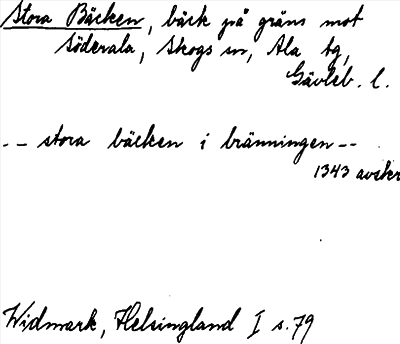 Stora Bäcken, bäck på gräns mot
Söderala, Skogs sn, Ala tg,
Gävleb. l.
-- stora bäcken i bränningen --
1343 avskr
Widmark, Helsingland I s. 79